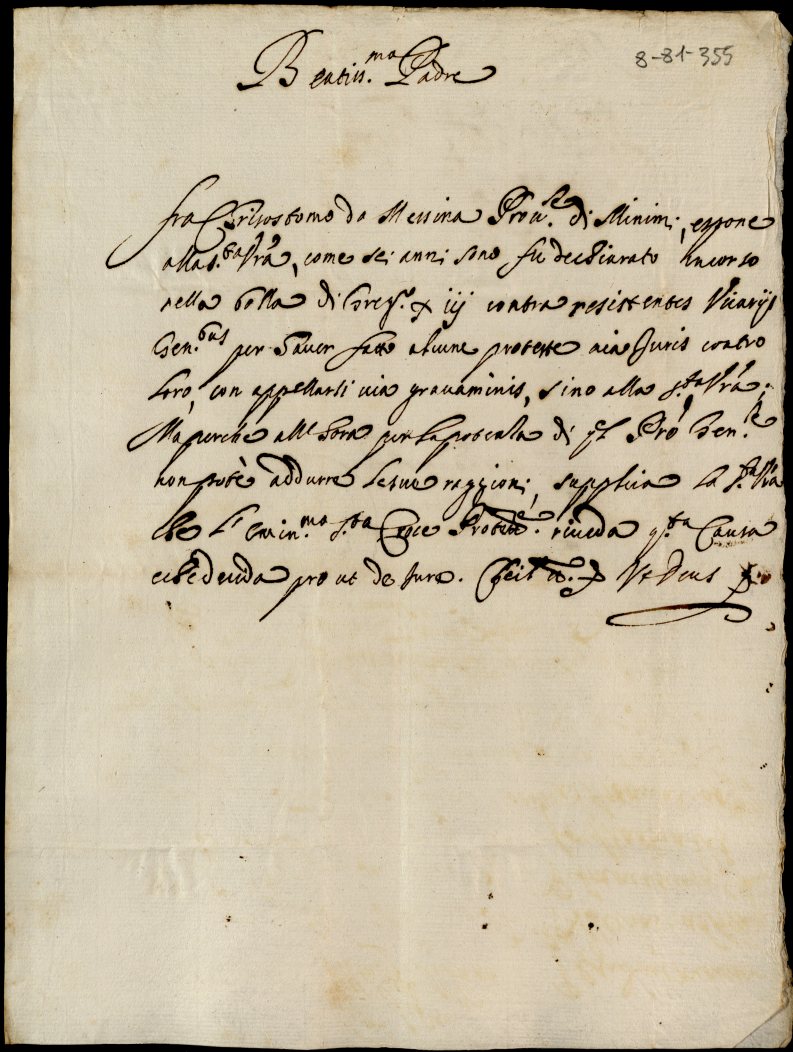 8-81-355
Beatiss.mo Padre
fra Chrisostomo da Messina Prou.le di Minimi, espone
alla S.tà Vrã, come sei anni sono fù dechiarato incorso
nella bolla di Greg.o X iij contra resistentes Vicarijs
Gen.bus per hauer fatte alcune proteste uia Juris contro
loro, con appellarsi uia grauaminis, sino alla S.tà Vrã;
Ma perche all'hora per la potenza di q.l Prõ Gen.le
non potè addurre le sue raggioni, supplica la S.tà Vrã
che l'Emin.mo S.ta Croce Protett.e riueda q.ta Causa
e che decida pro ut de Jure. Ut Deus